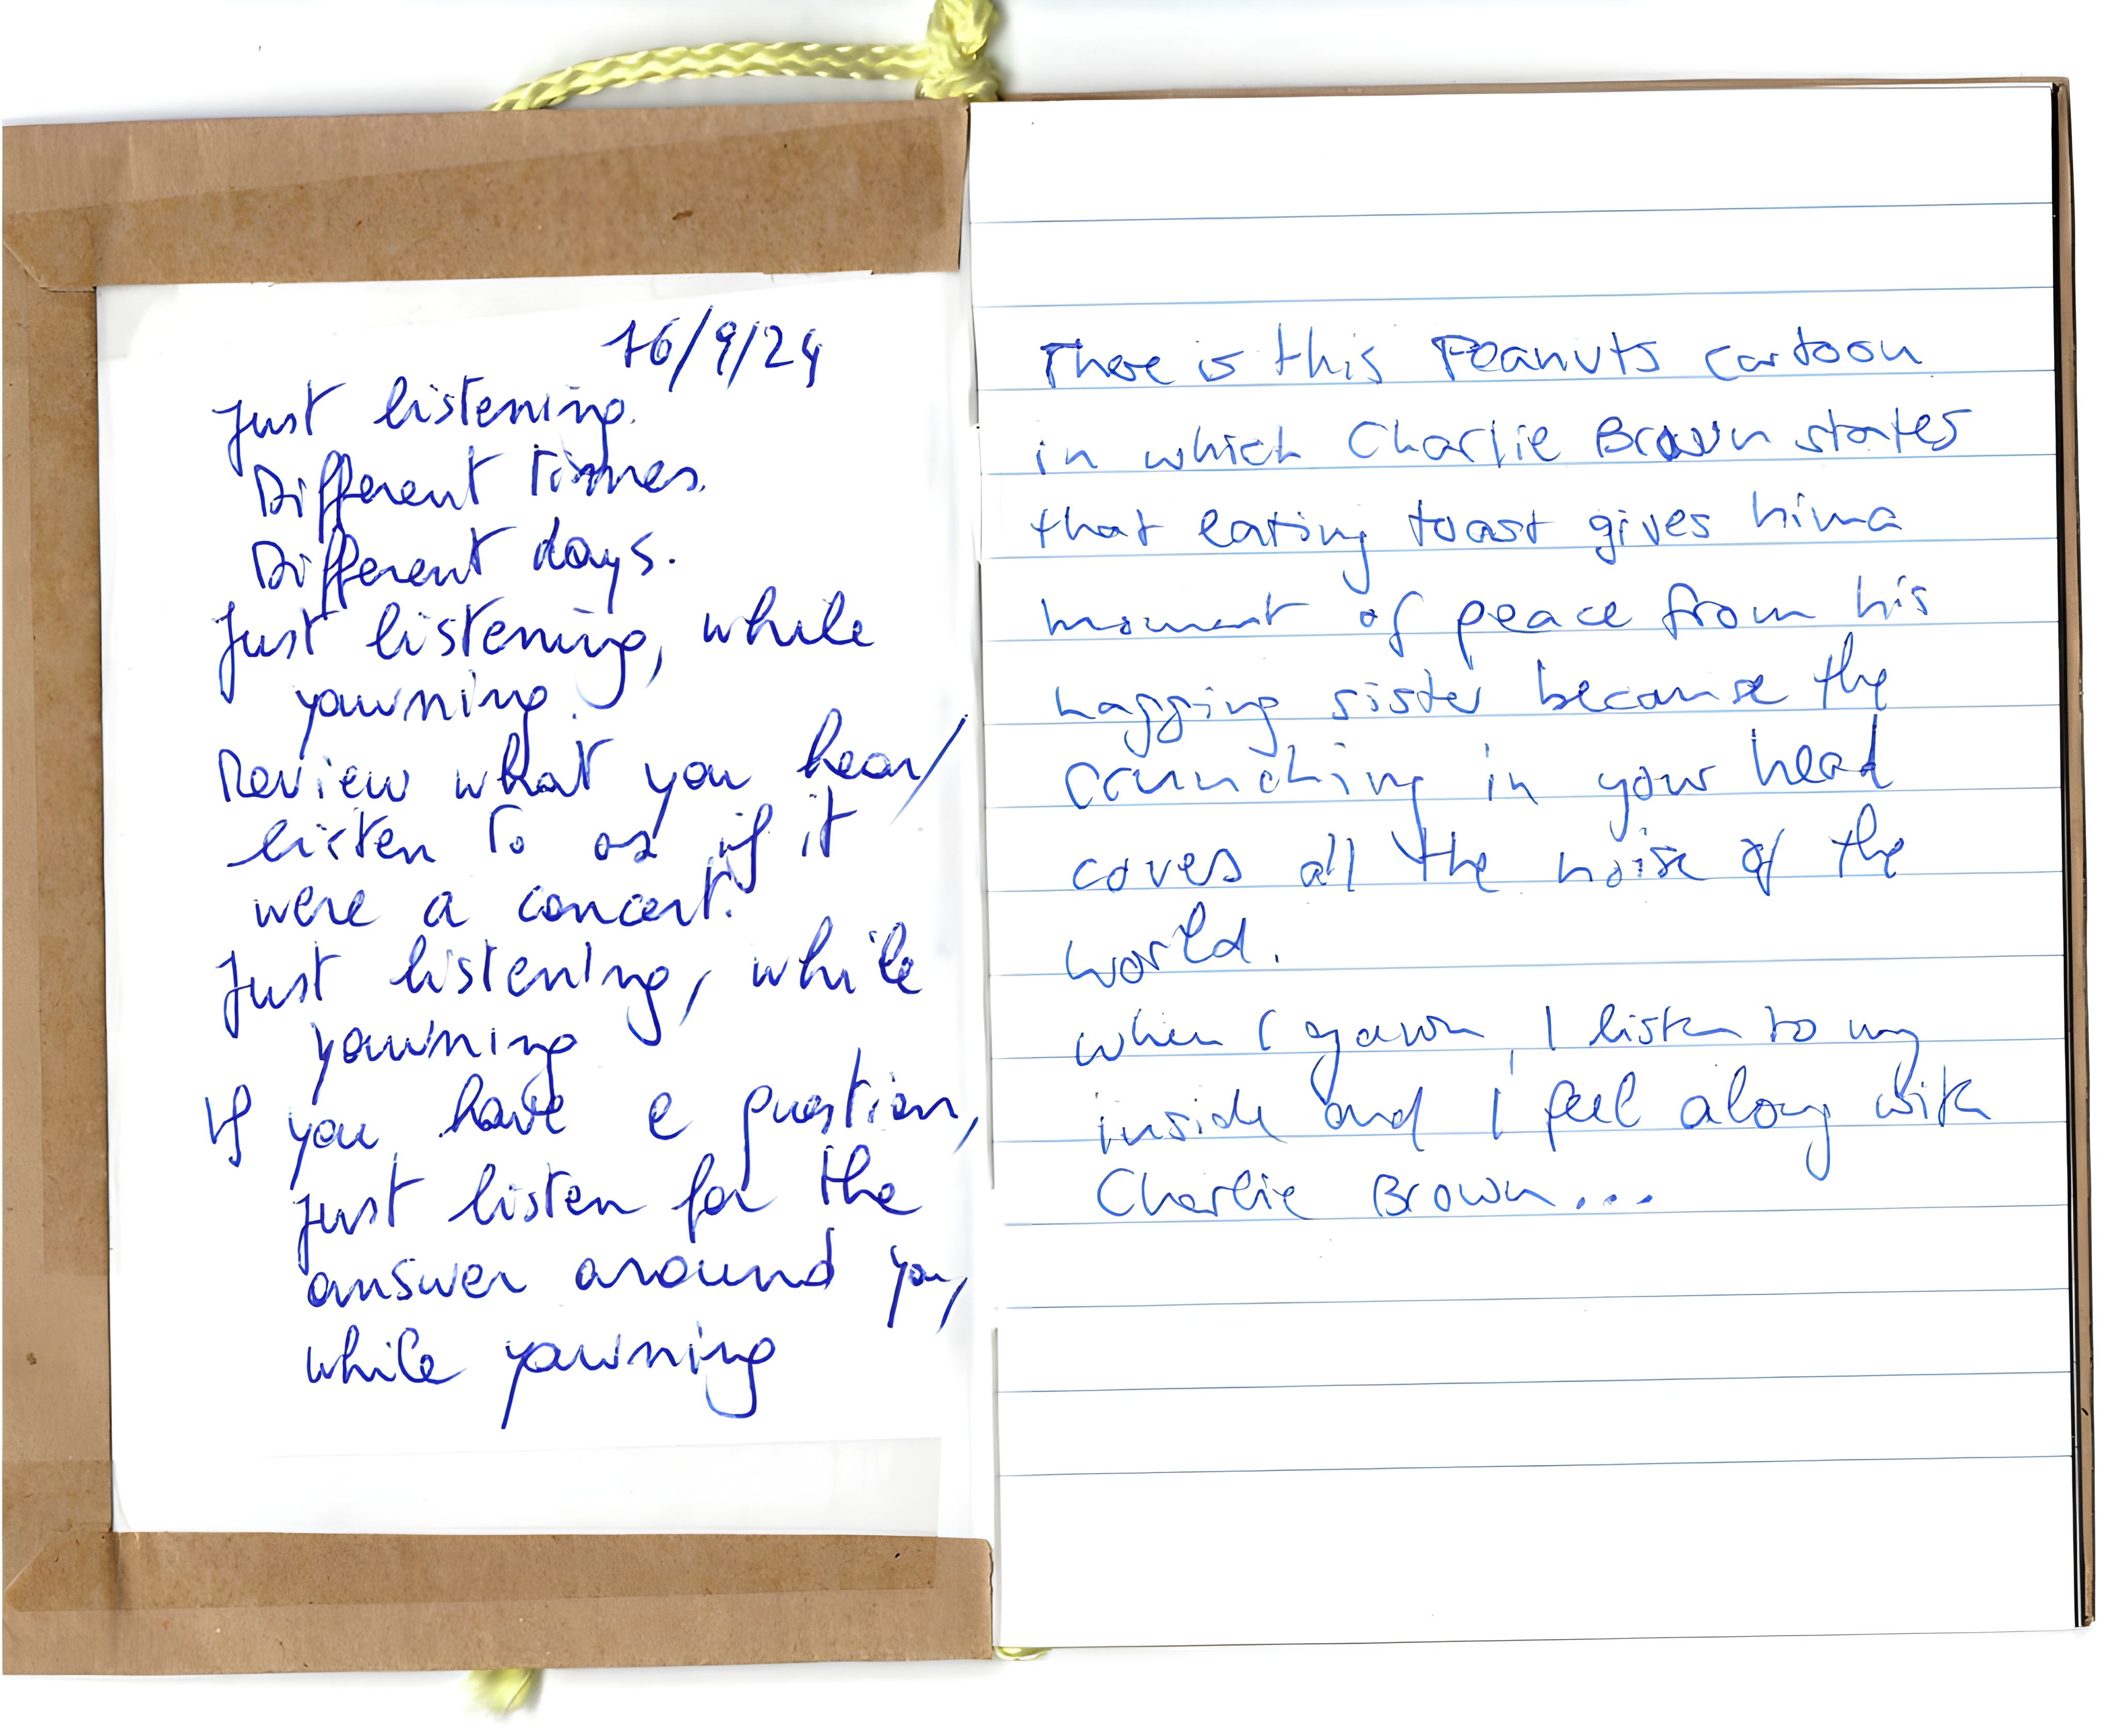 16/9/24
Just listening.
Different times.
Different days.
Just listening, while
yawning.
Review what you hear/
listen to as if it
were a concert.
Just listening, while
yawning
If you have a question,
just listen for the
answer around you,
while yawning
There is this Peanuts cartoon
in which Charlie Brown states
that eating toast gives him a
moment of peace from his
nagging sister because the
crunching in your head
covers all the noise of the
world.
When I yawn, I listen to my
inside and I feel along with
Charlie Brown...